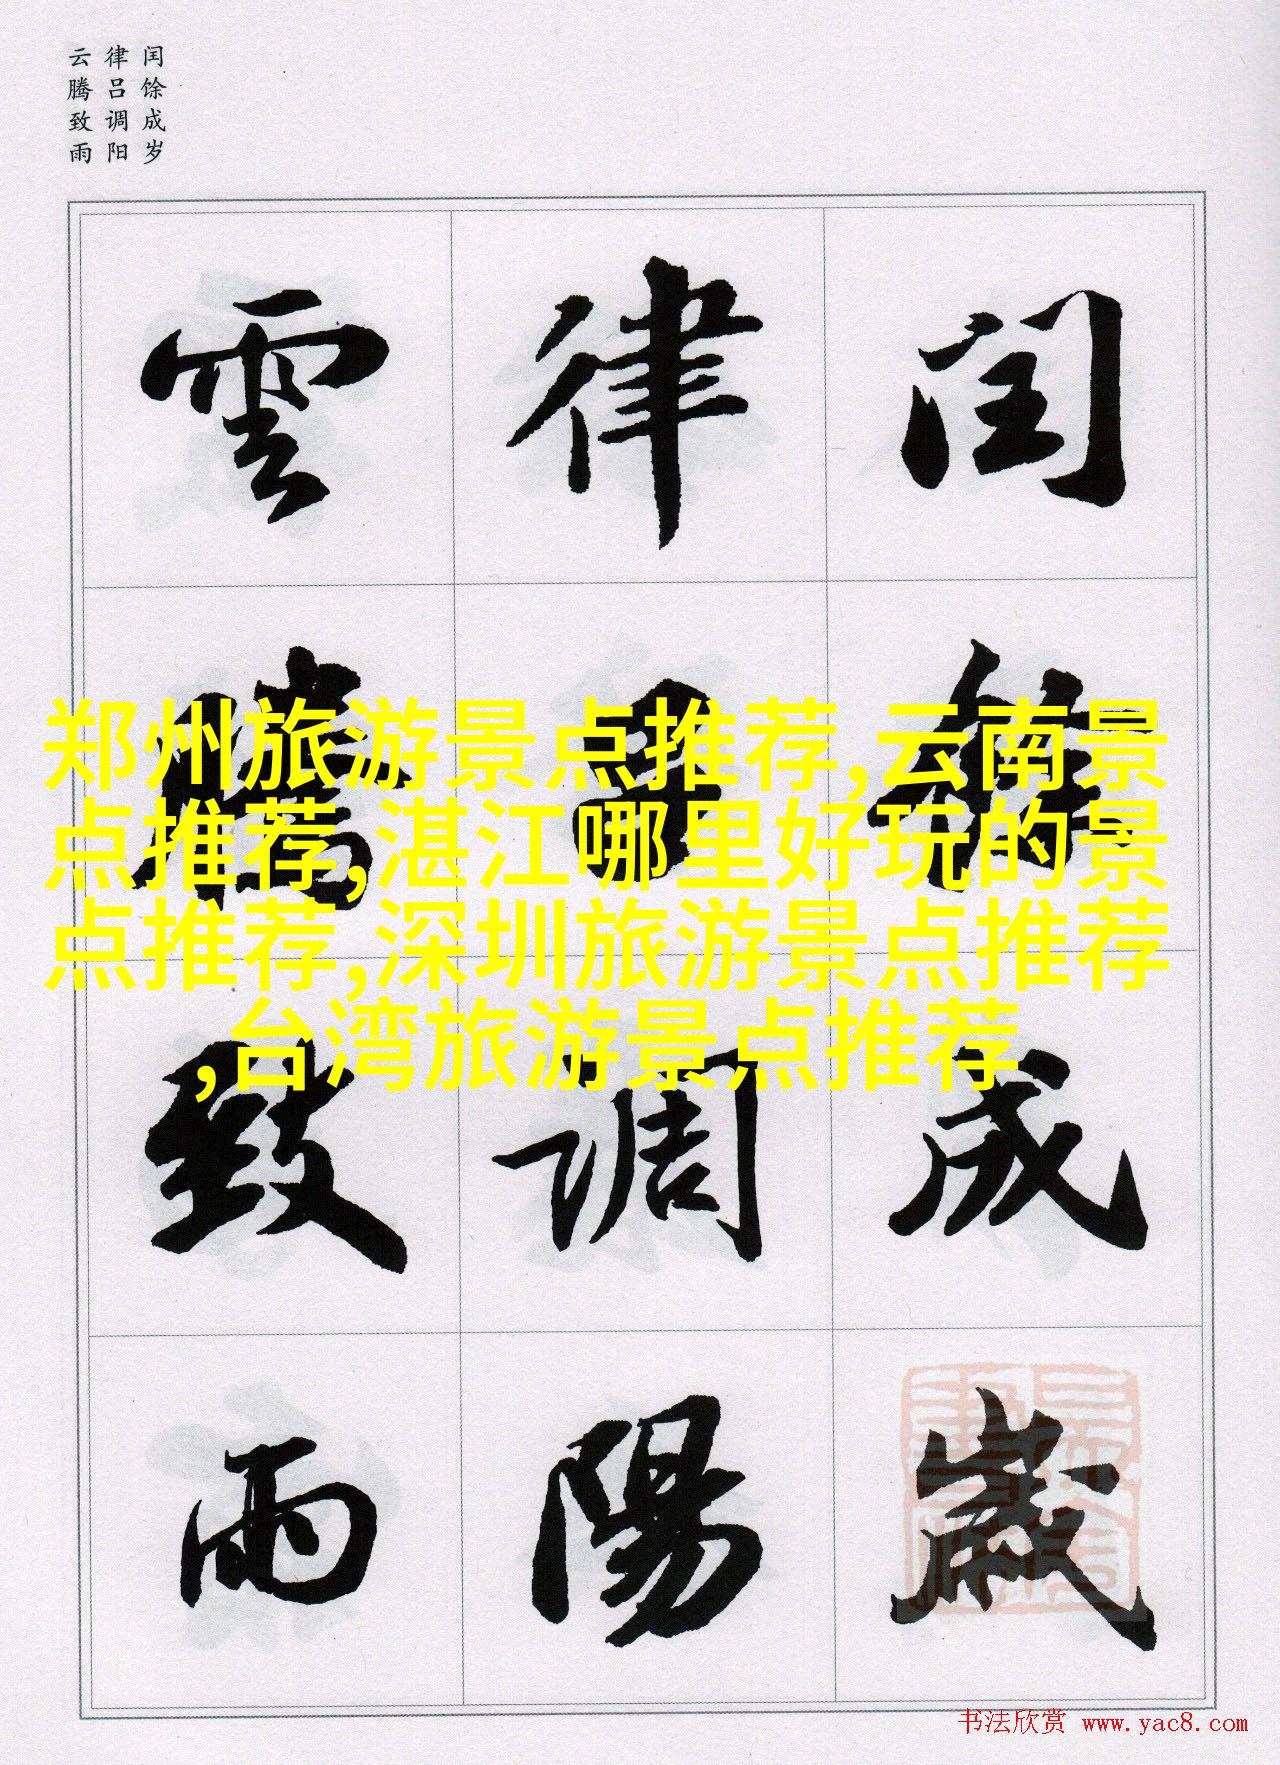 闰馀成岁
律吕调阳
云腾致雨
閏餘成歲
律吕調陽
雲騰致雨
郑州旅游景点推荐,云南景
点推荐,湛江哪里好玩的景
点推荐,深圳旅游景点推荐
,台湾旅游景点推荐
书法欣赏 www.yac8.com